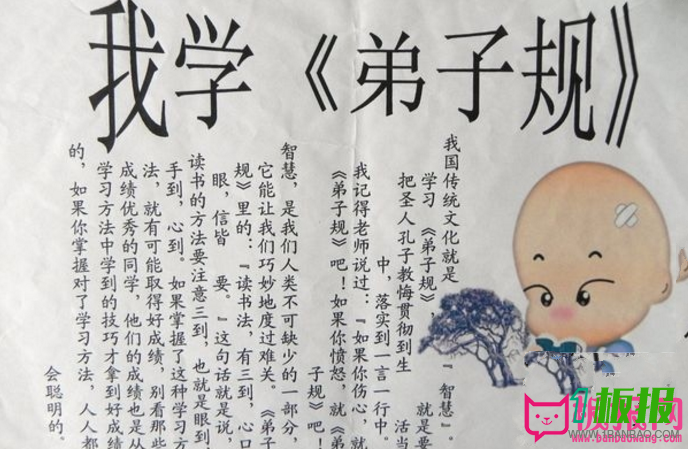 我学《弟子规》
我国传统文化就是『智慧』。
学习《弟子规》，就是要
把圣人孔子教悔贯彻到生活当
中，落实到一言一行中。
我记得老师说过：『如果你伤心，就
《弟子规》吧！如果你愤怒，就《弟
子规》吧！
智慧，是我们人类不可缺少的一部分，
它能让我们巧妙地度过难关。《弟子
规》里的：『读书法，有三到，心口
眼，信皆 要。』这句话就是说，
读书的方法要注意三到，也就是眼到
手到，心到。如果掌握了这种学习方
法，就有可能取得好成绩，别看那些
成绩优秀的同学，他们的成绩也是从
学习方法中学到的技巧才拿到好成绩
的，如果你掌握对了学习方法，人人都
会聪明的。
1板报
1BANBAO.COM
www.banbaowang.com